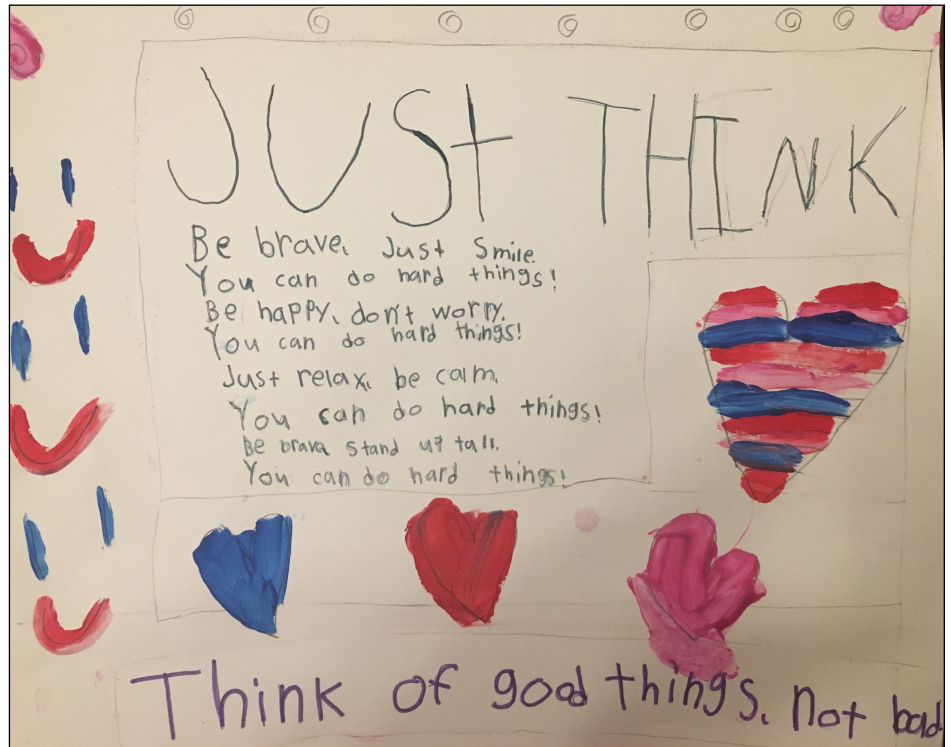 JUSt THINK
Be brave. Just Smile.
You can do hard things!
Be happy, don't worry.
You can do hard things!
Just relax, be calm.
You can do hard things!
Be brave stand up tall.
You can do hard things!
Think of good things, not bad